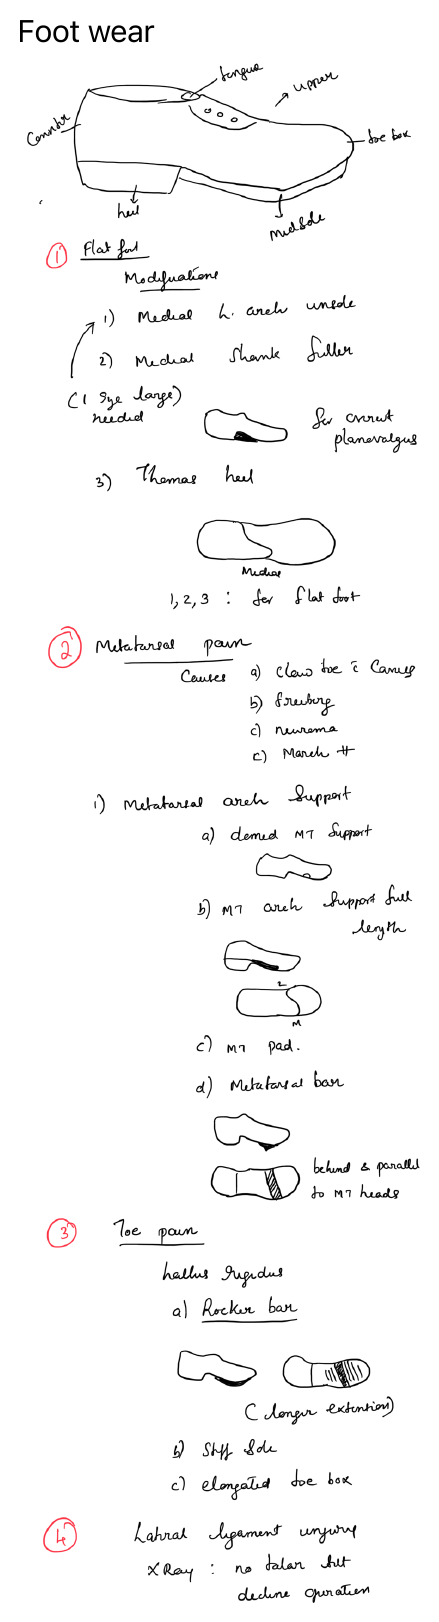 Foot wear
tongue
upper
Counter
toe box
heel
Midsole
① Flat foot
Modifications
1) Medial L. arch insole
2) Medial Shank filler
(1 size large) needed
for correct planovalgus
3) Thomas heel
Medial
1, 2, 3 : for flat foot
② Metatarsal pain
Causes a) Claw toe c̄ Cavus
b) freiberg
c) neuroma
c) March #
1) Metatarsal arch Support
a) domed MT Support
b) MT arch Support full length
L
M
c) MT pad.
d) Metatarsal bar
behind & parallel
to MT heads
③ Toe pain
hallus rigidus
a) Rocker bar
(longer extention)
b) Stiff Sole
c) elongated toe box
④ Latral ligament injury
X Ray : no talar tilt
decline operation